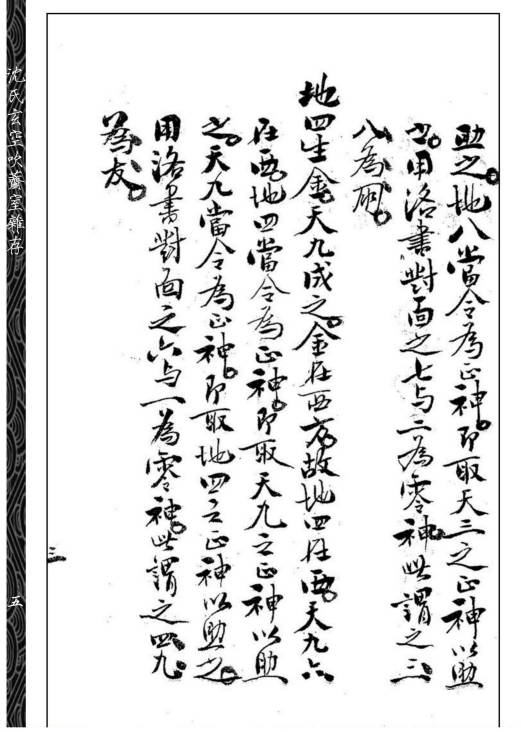 助之。地八當令為正神。即取天三之正神以助
之。用洛書對面之七与二為零神。此謂之三
八為朋。
地四生金。天九成之。金在西方。故地四在西。天九亦
在西。地四當令為正神。即取天九之正神以助
之。天九當令為正神。即取地四之正神以助之。
用洛書對面之六与一為零神。此謂之四九
為友。
三
沈氏玄空吹虀室雜存
五